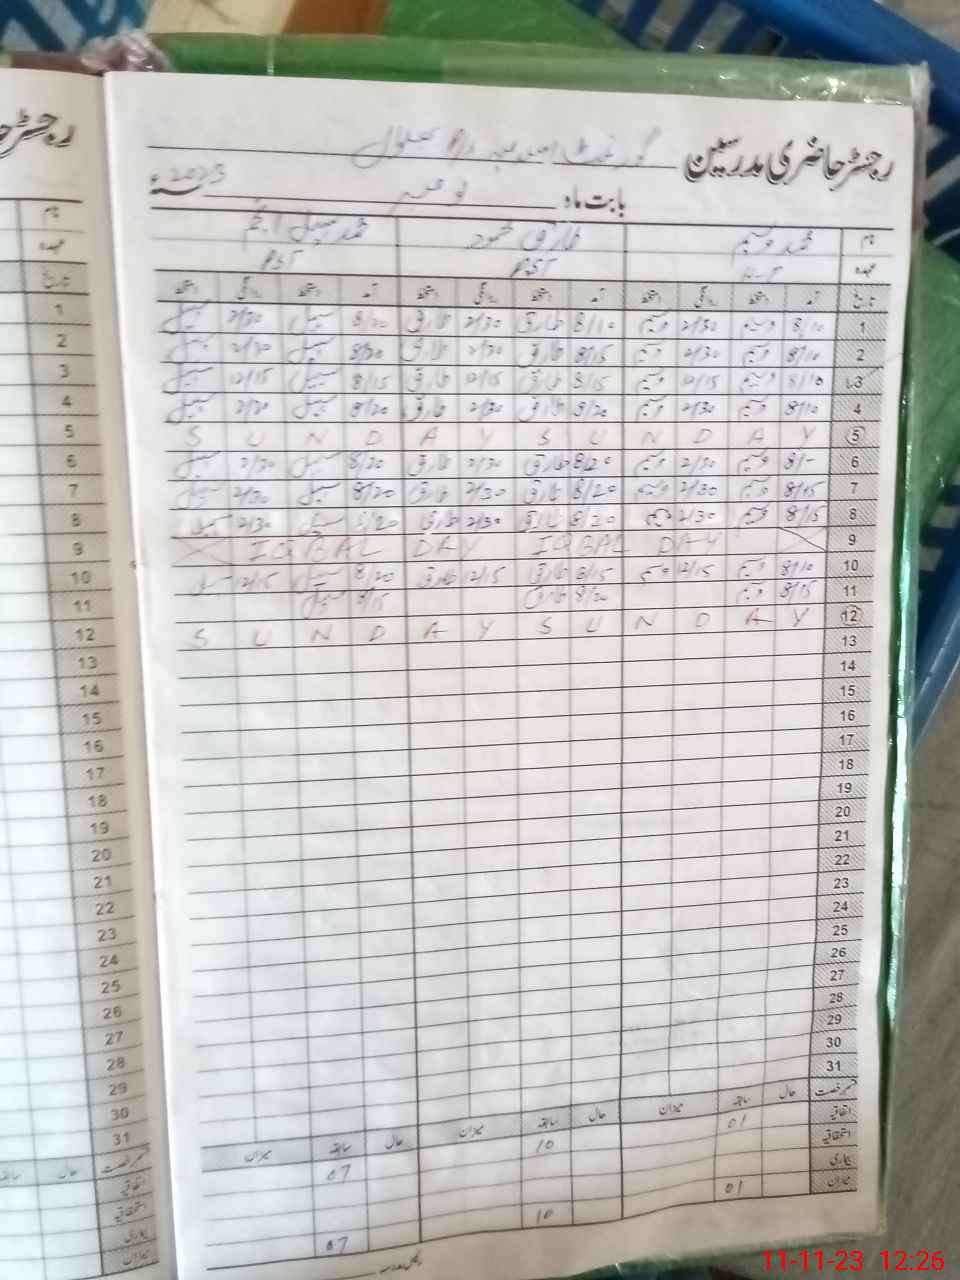 رجسٹر حاضری مدرسین گورنمنٹ
بابت ماہ نومبر 2023ء
نام محمد وسیم طارق محمود محمد سہیل انجم
عہدہ H-T PST PST
تاریخ آمد دستخط روانگی دستخط آمد دستخط روانگی دستخط آمد دستخط روانگی دستخط
1 8/10 وسیم 2/30 وسیم 8/10 طارق 2/30 طارق 8/20 سہیل 2/30 سہیل
2 8/10 وسیم 2/30 وسیم 8/15 طارق 2/30 طارق 8/20 سہیل 2/30 سہیل
3 8/10 وسیم 12/15 وسیم 8/15 طارق 12/15 طارق 8/15 سہیل 12/15 سہیل
4 8/10 وسیم 2/30 وسیم 8/20 طارق 2/30 طارق 8/20 سہیل 2/30 سہیل
5 S U N D A Y S U N D A Y
6 8/- وسیم 2/30 وسیم 8/20 طارق 2/30 طارق 8/20 سہیل 2/30 سہیل
7 8/15 وسیم 2/30 وسیم 8/20 طارق 2/30 طارق 8/20 سہیل 2/30 سہیل
8 8/15 وسیم 2/30 وسیم 8/20 طارق 2/30 طارق 8/20 سہیل 2/30 سہیل
9 IQBAL DAY IQBAL DAY
10 8/10 وسیم 12/15 وسیم 8/15 طارق 12/15 طارق 8/20 سہیل 12/15 سہیل
11 8/15 وسیم 8/20 طارق 8/15 سہیل
12 S U N D A Y S U N D A Y
13
14
15
16
17
18
19
20
21
22
23
24
25
26
27
28
29
30
31
رخصت حال سابقہ میزان حال سابقہ میزان حال سابقہ میزان
اتفاقیہ 01 10 07
استحقاقیہ
بیماری
میزان 01 10 07
رجسٹر
نام
عہدہ
تاریخ
1
2
3
4
5
6
7
8
9
10
11
12
13
14
15
16
17
18
19
20
21
22
23
24
25
26
27
28
29
30
31
رخصت حال سابقہ
اتفاقیہ
استحقاقیہ
بیماری
میزان
11-11-23 12:26